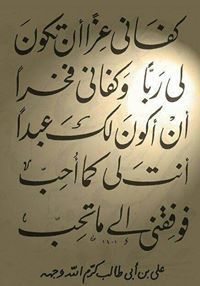 كفاني عزًّا أن تكون
لي ربًّا وكفاني فخرًا
أن أكون لك عبدًا
أنت لي كما أحبّ
فوفقني إلى ما تحبّ
علي بن أبي طالب كرّم الله وجهه